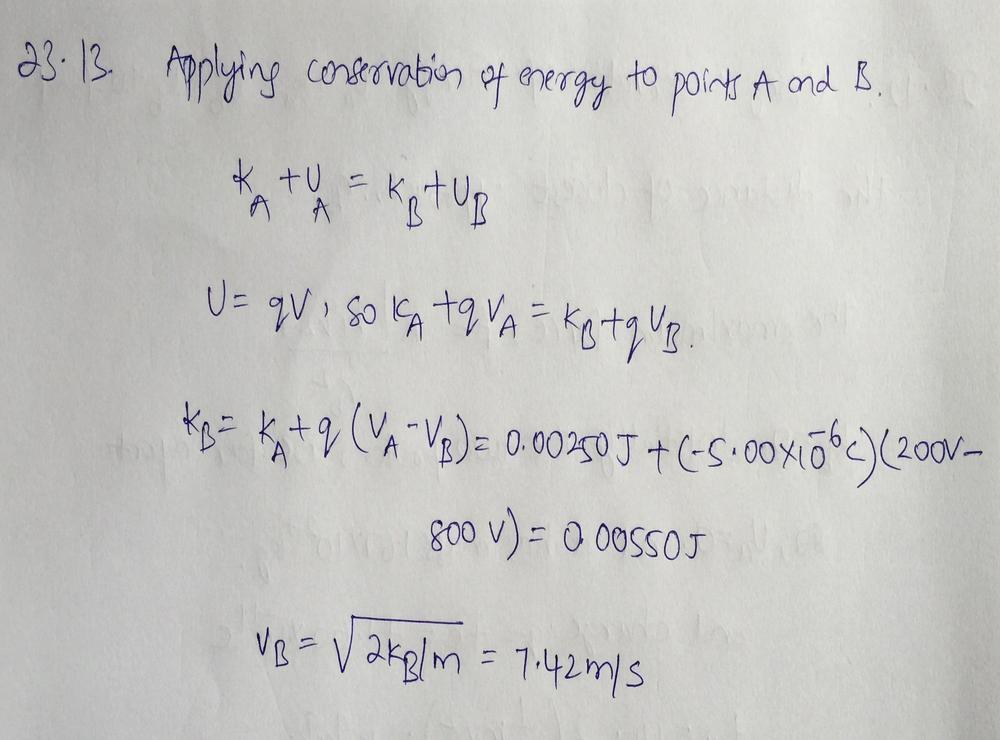 23.13. Applying conservation of energy to points A and B.
K_A + U_A = K_B + U_B
U = qV, so K_A + qV_A = K_B + qV_B.
K_B = K_A + q(V_A - V_B) = 0.00250J + (-5.00×10⁻⁶C)(200V-
800V) = 0.00550J
V_B = √2K_B/m = 7.42m/s